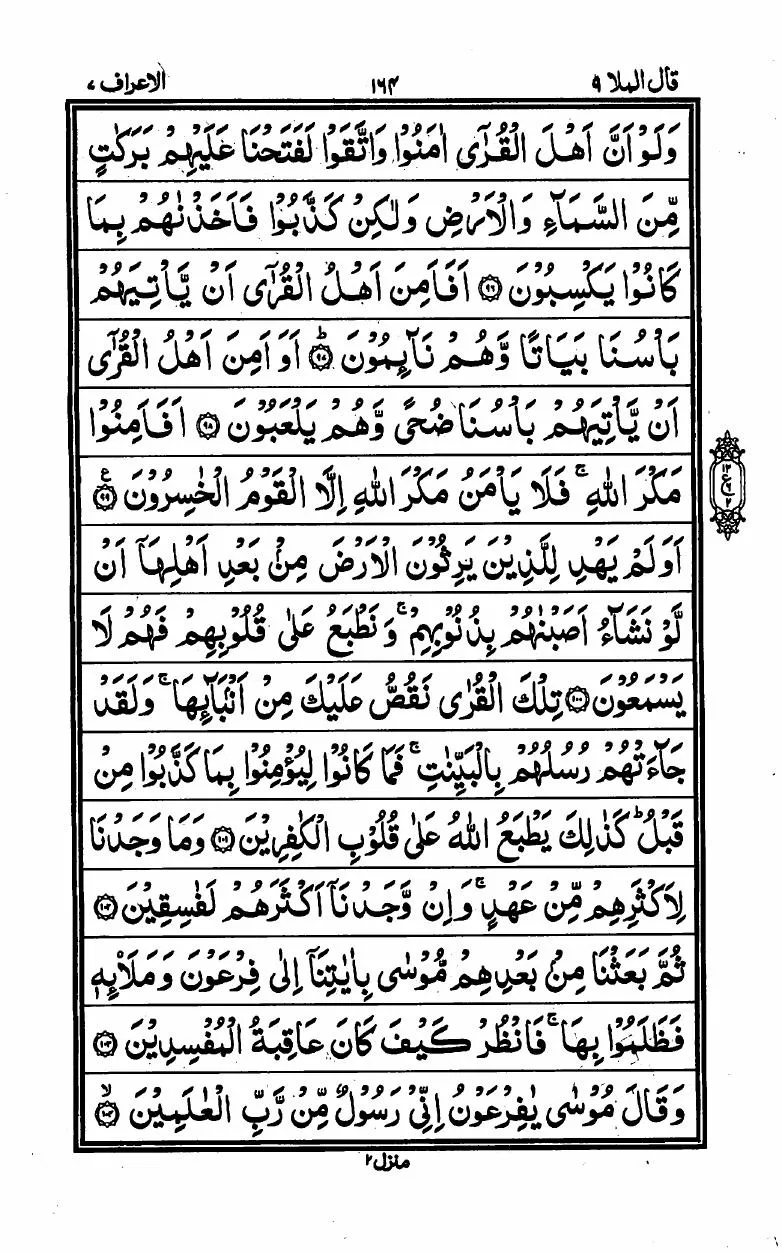 قال الملا ٩ ١٦٣ الاعراف ٧
وَلَوْ اَنَّ اَهْلَ الْقُرٰٓى اٰمَنُوْا وَاتَّقَوْا لَفَتَحْنَا عَلَيْهِمْ بَرَكٰتٍ
مِّنَ السَّمَآءِ وَالْاَرْضِ وَلٰكِنْ كَذَّبُوْا فَاَخَذْنٰهُمْ بِمَا
كَانُوْا يَكْسِبُوْنَ ۝٩٦ اَفَاَمِنَ اَهْلُ الْقُرٰٓى اَنْ يَّاْتِيَهُمْ
بَاْسُنَا بَيَاتًا وَّهُمْ نَآئِمُوْنَ ؕ۝٩٧ اَوَ اَمِنَ اَهْلُ الْقُرٰٓى
اَنْ يَّاْتِيَهُمْ بَاْسُنَا ضُحًى وَّهُمْ يَلْعَبُوْنَ ۝٩٨ اَفَاَمِنُوْا
مَكْرَ اللّٰهِ ۚ فَلَا يَاْمَنُ مَكْرَ اللّٰهِ اِلَّا الْقَوْمُ الْخٰسِرُوْنَ ۝٩٩ ع
اَوَلَمْ يَهْدِ لِلَّذِيْنَ يَرِثُوْنَ الْاَرْضَ مِنْۢ بَعْدِ اَهْلِهَاۤ اَنْ
لَّوْ نَشَآءُ اَصَبْنٰهُمْ بِذُنُوْبِهِمْ ۚ وَنَطْبَعُ عَلٰى قُلُوْبِهِمْ فَهُمْ لَا
يَسْمَعُوْنَ ۝١٠٠ تِلْكَ الْقُرٰى نَقُصُّ عَلَيْكَ مِنْ اَنْۢبَآئِهَا ۚ وَلَقَدْ
جَآءَتْهُمْ رُسُلُهُمْ بِالْبَيِّنٰتِ ۚ فَمَا كَانُوْا لِيُؤْمِنُوْا بِمَا كَذَّبُوْا مِنْ
قَبْلُ ؕ كَذٰلِكَ يَطْبَعُ اللّٰهُ عَلٰى قُلُوْبِ الْكٰفِرِيْنَ ۝١٠١ وَمَا وَجَدْنَا
لِاَكْثَرِهِمْ مِّنْ عَهْدٍ ۚ وَاِنْ وَّجَدْنَاۤ اَكْثَرَهُمْ لَفٰسِقِيْنَ ۝١٠٢
ثُمَّ بَعَثْنَا مِنْۢ بَعْدِهِمْ مُّوْسٰى بِاٰيٰتِنَاۤ اِلٰى فِرْعَوْنَ وَمَلَا۟ئِهٖ
فَظَلَمُوْا بِهَا ۚ فَانْظُرْ كَيْفَ كَانَ عَاقِبَةُ الْمُفْسِدِيْنَ ۝١٠٣
وَقَالَ مُوْسٰى يٰفِرْعَوْنُ اِنِّىْ رَسُوْلٌ مِّنْ رَّبِّ الْعٰلَمِيْنَ ۙ۝١٠٤
منزل ٢